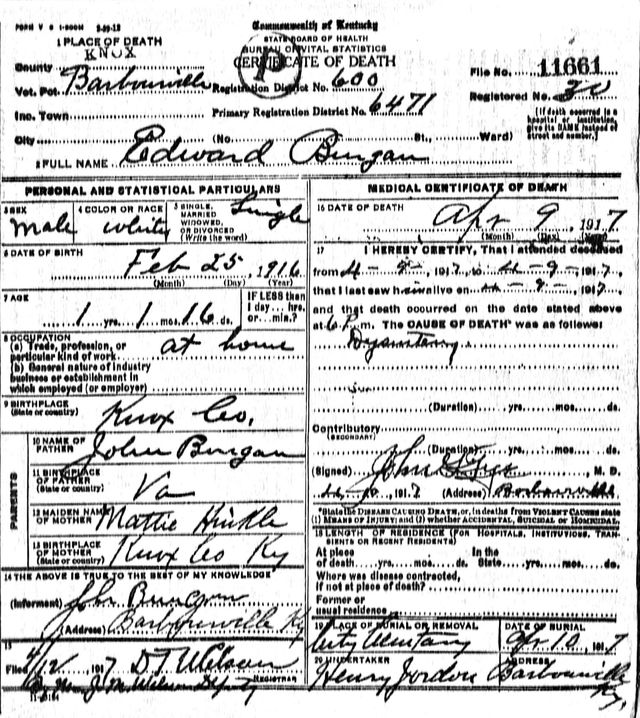 FORM V S 1-500M 2-29-12
Commonwealth of Kentucky
STATE BOARD OF HEALTH
BUREAU OF VITAL STATISTICS
CERTIFICATE OF DEATH
P
1 PLACE OF DEATH
KNOX
County
Vot. Pct. Barbourville Registration District No. 600
File No. 11661
Inc. Town Primary Registration District No. 6471
Registered No. 30
City (No. St., Ward)
[If death occurred in a hospital or institution, give its NAME instead of street and number.]
2 FULL NAME Edward Bungan
PERSONAL AND STATISTICAL PARTICULARS
3 SEX
male
4 COLOR OR RACE
white
5 SINGLE, MARRIED WIDOWED, OR DIVORCED (Write the word)
Single
6 DATE OF BIRTH
Feb 25, 1916
(Month) (Day) (Year)
7 AGE
1 yrs. 1 mos. 16 ds.
IF LESS than 1 day... hrs. or... min.?
8 OCCUPATION
(a) Trade, profession, or particular kind of work at home
(b) General nature of industry business or establishment in which employed (or employer)
9 BIRTHPLACE
(State or country)
Knox Co,
PARENTS
10 NAME OF FATHER
John Bungan
11 BIRTHPLACE OF FATHER
(State or country)
Va
12 MAIDEN NAME OF MOTHER
Mattie Hinkle
13 BIRTHPLACE OF MOTHER
(State or country)
Knox Co Ky
14 THE ABOVE IS TRUE TO THE BEST OF MY KNOWLEDGE
(Informant) Jhn Bungan
(Address) Barbourville Ky
15
Filed 4/12 1917 D T Wilson
REGISTRAR
11-3164
MEDICAL CERTIFICATE OF DEATH
16 DATE OF DEATH
Apr 9, 1917
(Month) (Day) (Year)
17 I HEREBY CERTIFY, That I attended deceased
from 4-9-, 1917, to 4-9-, 1917,
that I last saw him alive on 4-9-, 1917,
and that death occurred on the date stated above
at 6 P.m. The CAUSE OF DEATH* was as follows:
Dysentery
(Duration) yrs. mos. ds.
Contributory
(SECONDARY)
(Duration) yrs. mos. ds.
(Signed) M. D.
4-10, 1917 (Address) Barbourville
*State the DISEASE CAUSING DEATH, or, in deaths from VIOLENT CAUSES state
(1) MEANS OF INJURY; and (2) whether ACCIDENTAL, SUICIDAL or HOMICIDAL.
18 LENGTH OF RESIDENCE (FOR HOSPITALS, INSTITUTIONS, TRANSIENTS OR RECENT RESIDENTS)
At place In the
of death yrs. mos. ds. State yrs. mos. ds.
Where was disease contracted,
If not at place of death?
Former or
usual residence
19 PLACE OF BURIAL OR REMOVAL
City Cemetary
DATE OF BURIAL
Apr 10 1917
20 UNDERTAKER
Henry Jordon
ADDRESS
Barbourville Ky,